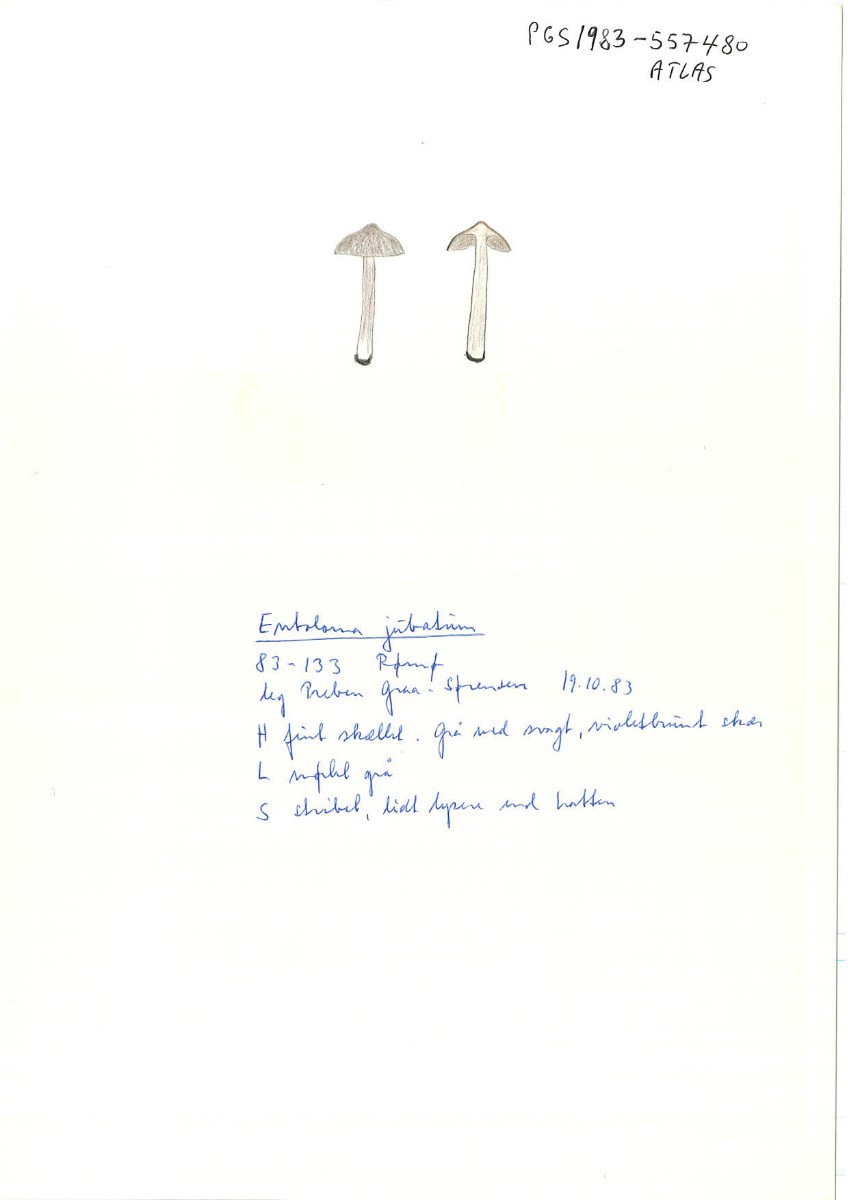 PGS1983-557480
ATLAS
Entoloma jubatum
83-133
leg Preben Graa-Sørensen 19.10.83
H fint skællet. Grå med svagt, violetbrunt skær
L mørkt grå
S stribet, lidt lysere end hatten